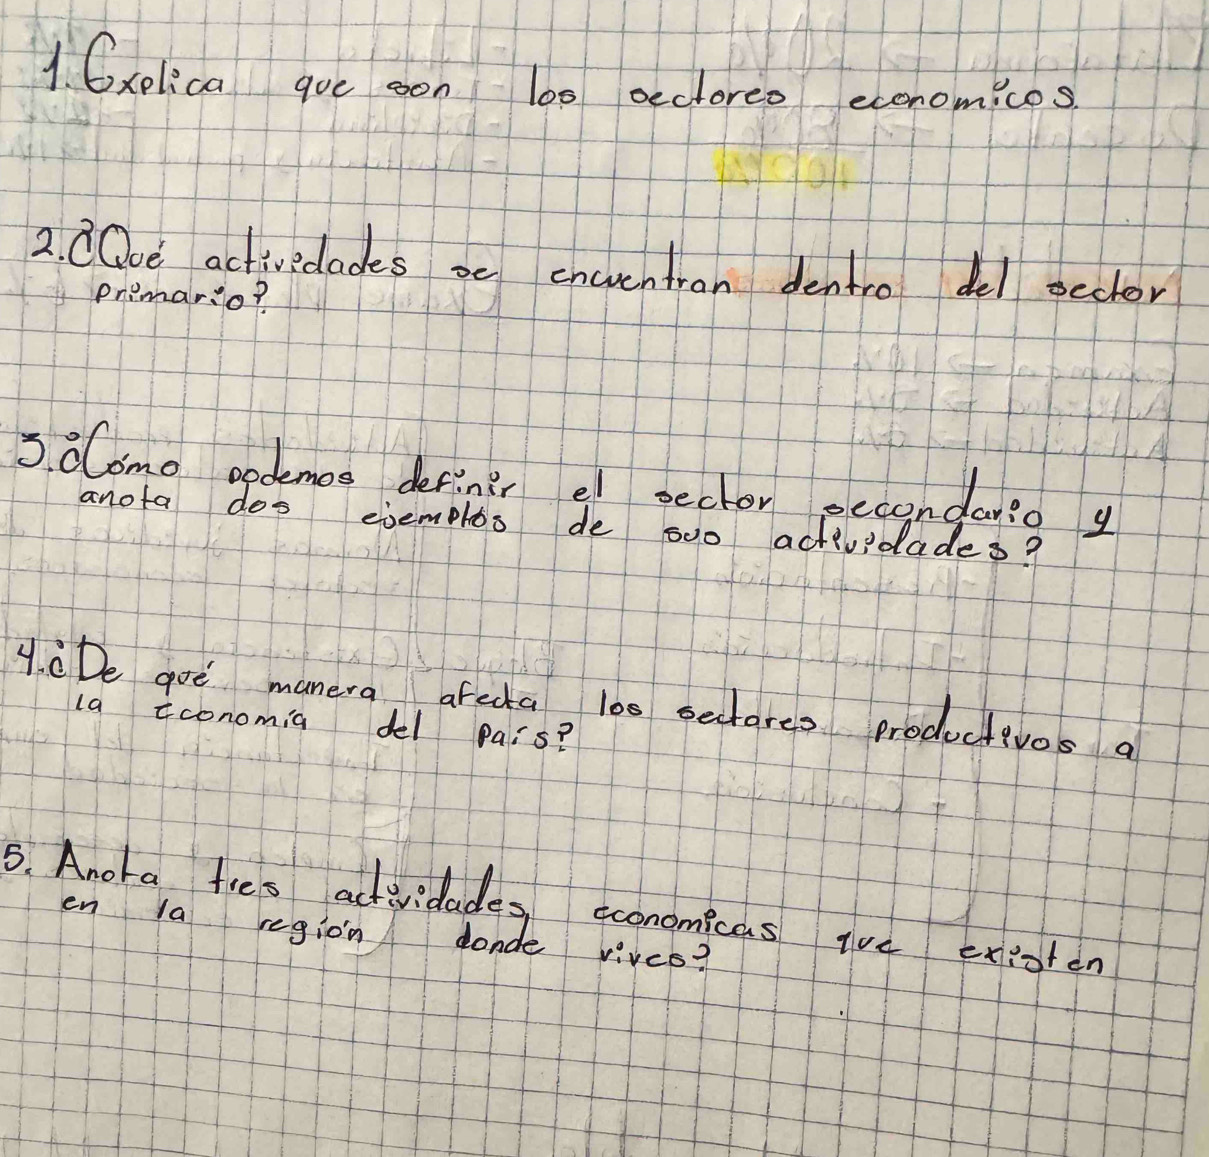 1. Explica que son los sectores economicos.
2. ¿Qué actividades se encuentran dentro del sector
primario?
3. ¿Cómo podemos definir el sector secundario y
anota dos ejemplos de sus actividades?
4. ¿De qué manera afecta los sectores productivos a
la economía del país?
5. Anota tres actividades económicas que existen
en la región donde vives?